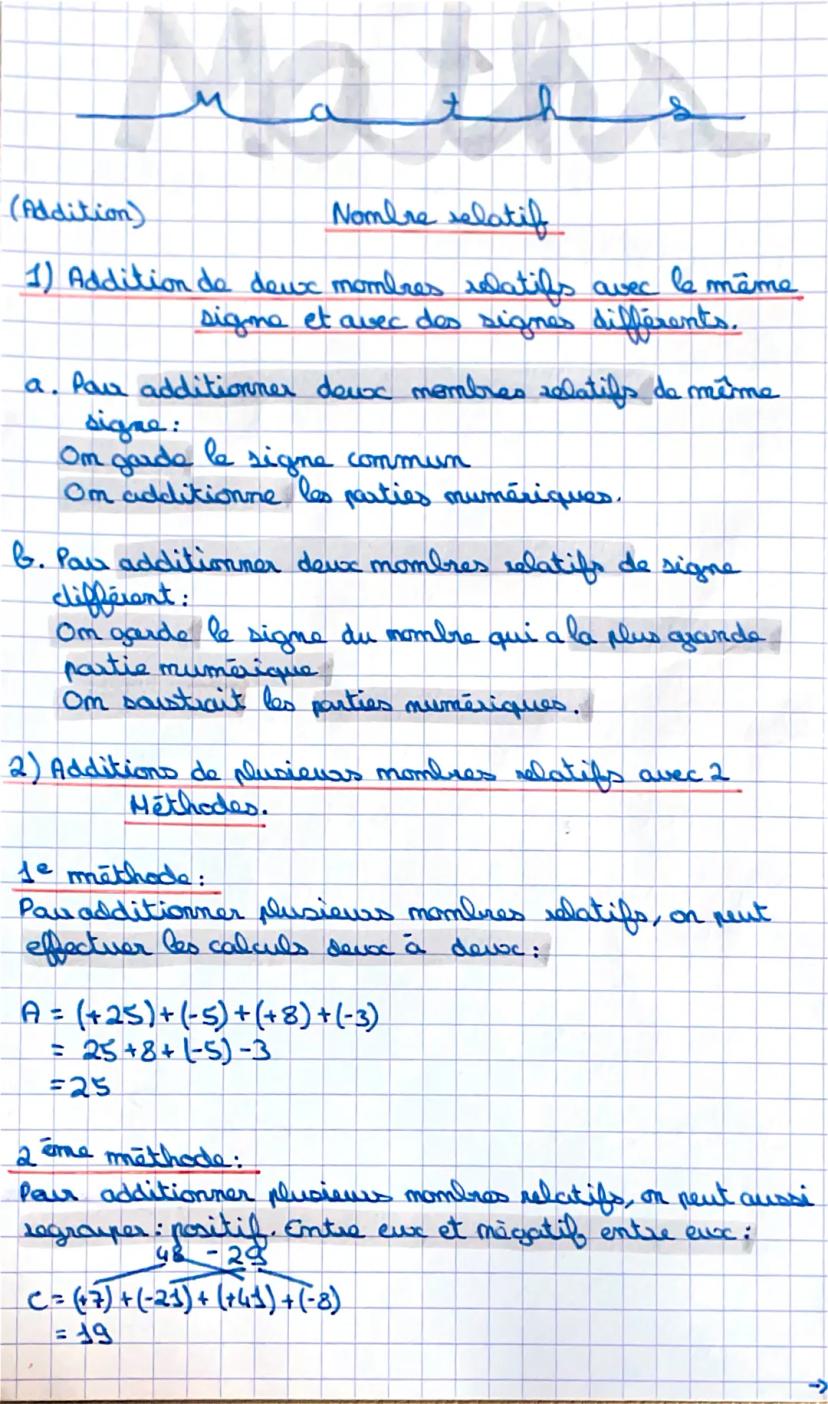 Maths
(Addition) Nombre relatif
1) Addition de deux nombres relatifs avec le même
signe et avec des signes différents.
a. Pour additionner deux nombres relatifs de même
signe :
On garde le signe commun
On additionne les parties numériques.
b. Pour additionner deux nombres relatifs de signe
différent :
On garde le signe du nombre qui a la plus grande
partie numérique
On soustrait les parties numériques.
2) Additions de plusieurs nombres relatifs avec 2
Méthodes.
1e méthode :
Pour additionner plusieurs nombres relatifs, on peut
effectuer les calculs deux à deux :
A = (+25)+(-5)+(+8)+(-3)
= 25+8+(-5)-3
=25
2ème méthode :
Pour additionner plusieurs nombres relatifs, on peut aussi
regrouper : positif. Entre eux et négatif entre eux :
48 - 29
C = (+7)+(-21)+(+41)+(-8)
= 19
→